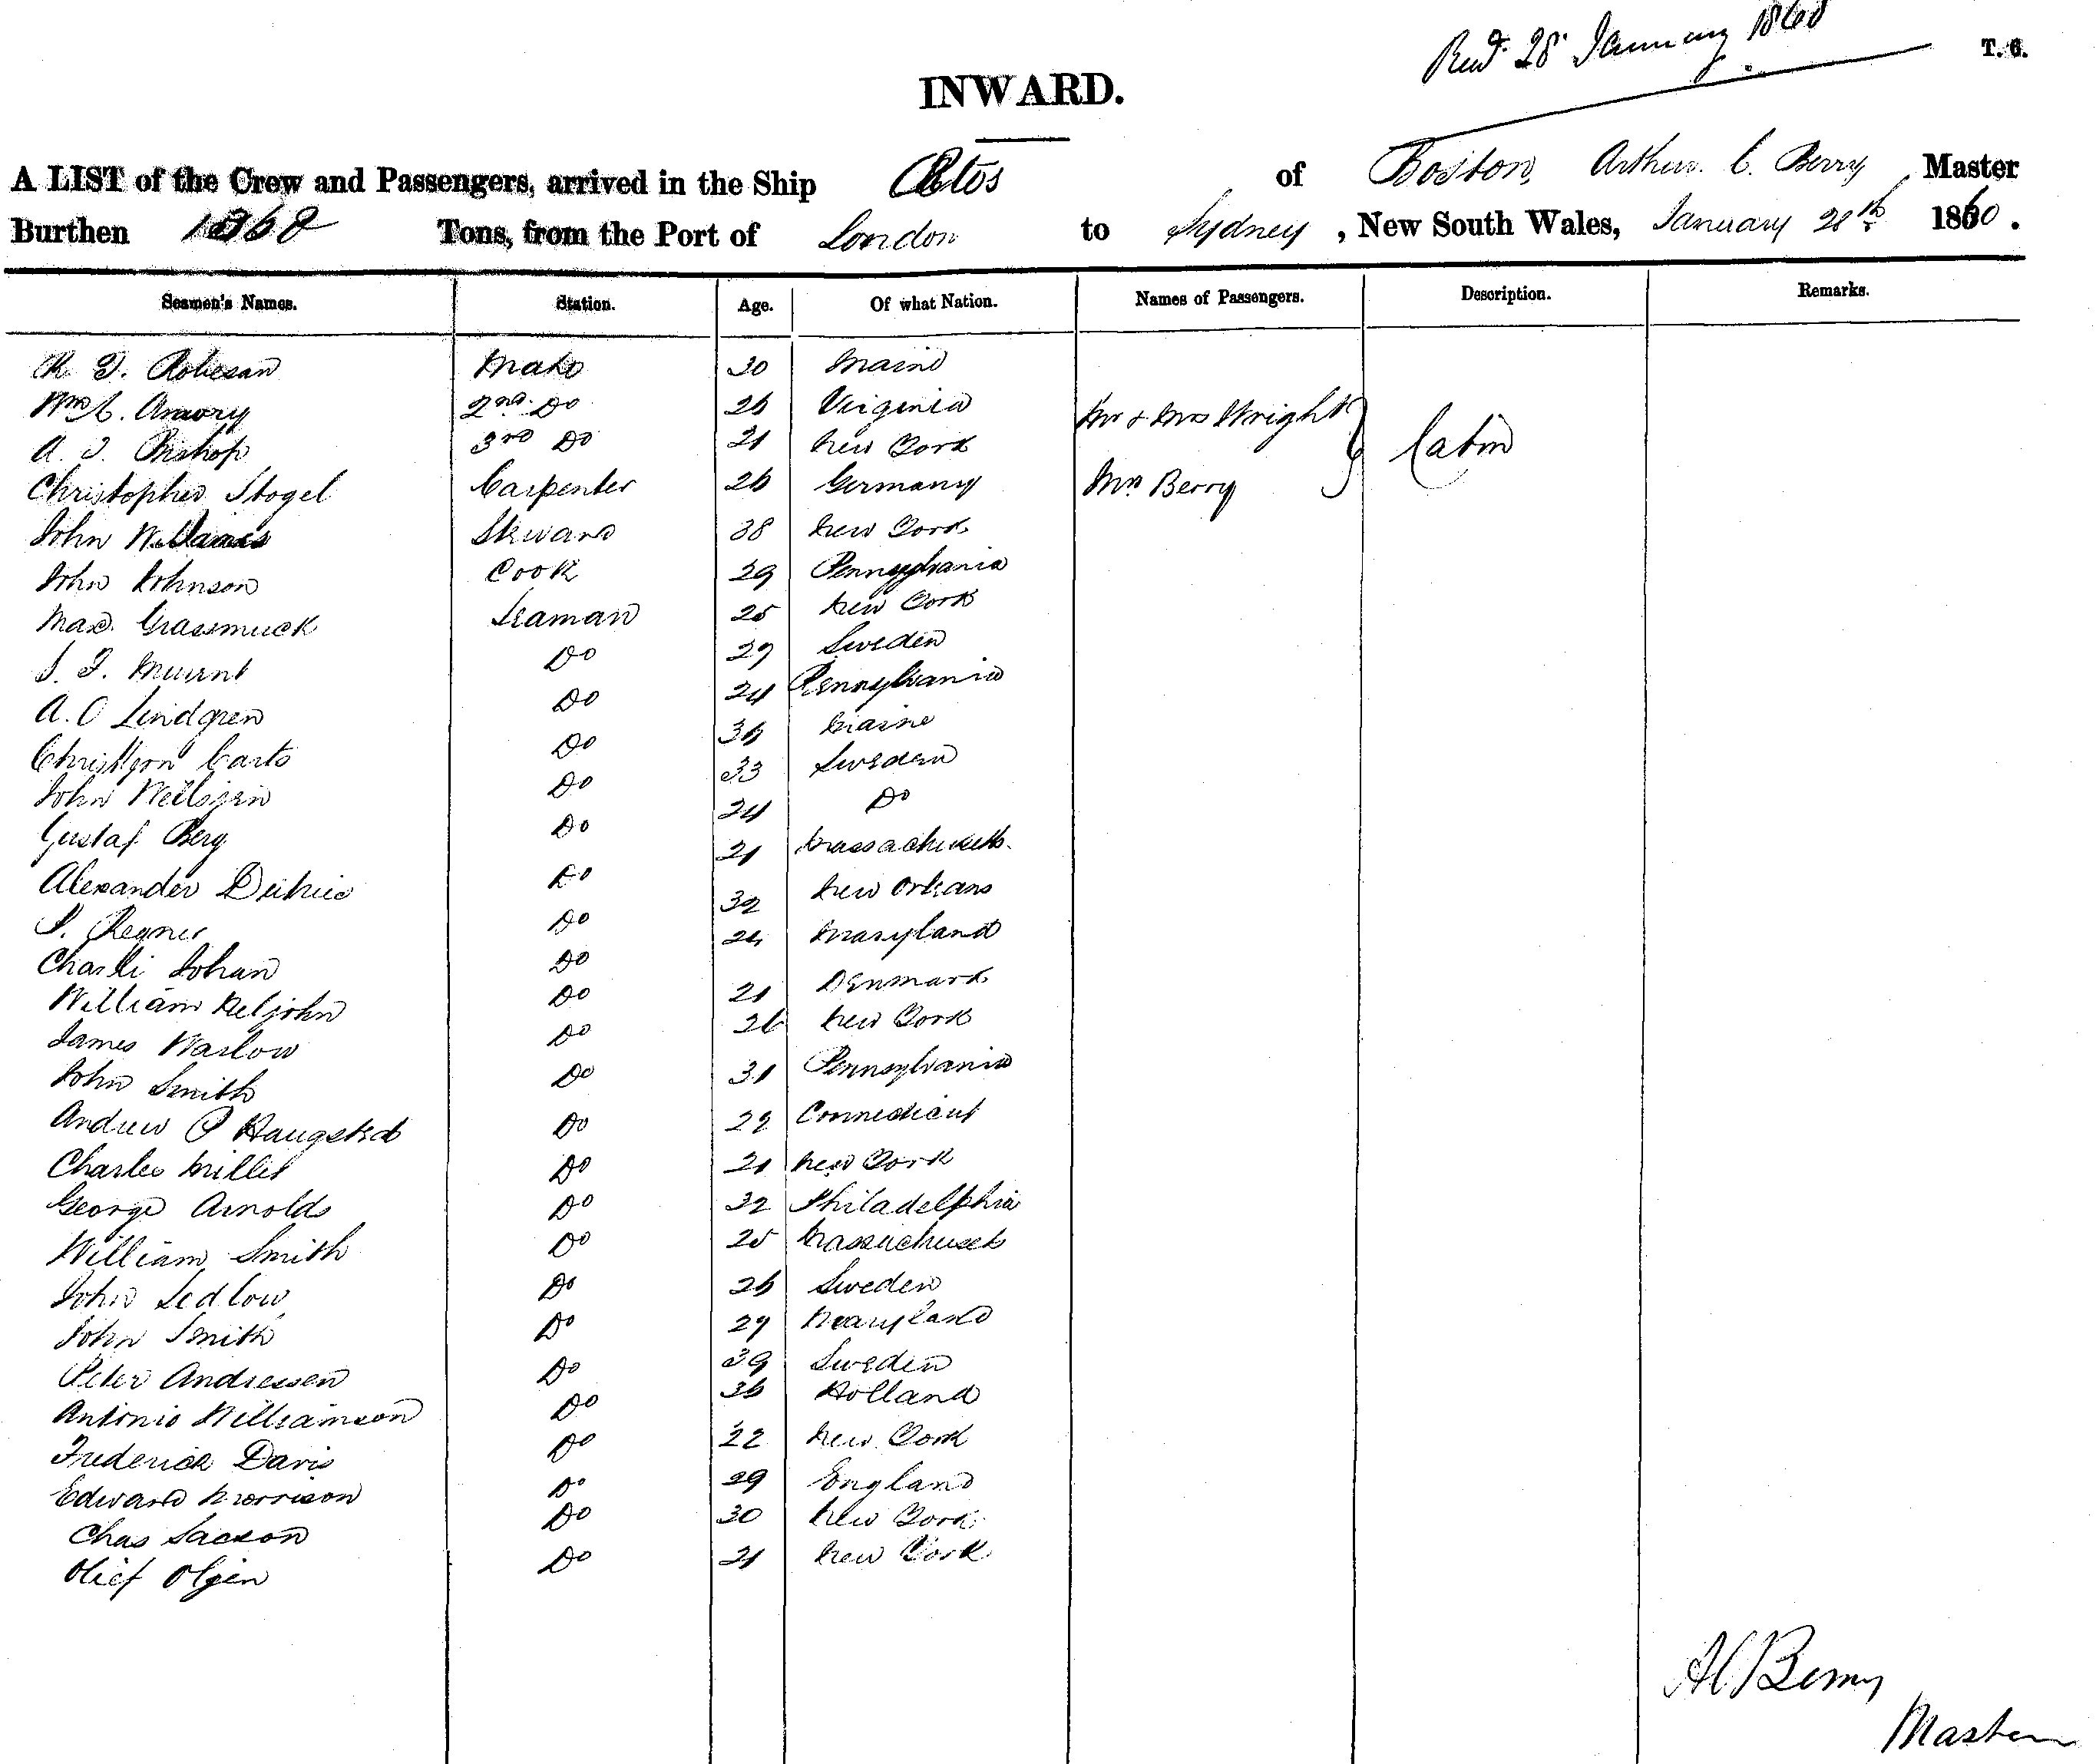 Recd 28 January 1860
T. 6.
INWARD.
A LIST of the Crew and Passengers, arrived in the Ship of Boston, Arthur. C. Berry Master
Burthen Tons, from the Port of London to Sydney, New South Wales, January 28th 1860.
Seamen's Names. Station. Age. Of what Nation. Names of Passengers. Description. Remarks.
Mate 30 Maine
Wm C. Amory 2nd Do 26 Virginia Mr & Mrs Wright
A. T. Bishop 3rd Do 21 New York Cabin
Christopher Stogel Carpenter 26 Germany Mrs Berry
John Williams Steward 38 New York
John Johnson Cook 29 Pennsylvania
Max. Grassmuck Seaman 25 New York
Do 29 Sweden
A. O Lindgren Do 24 Pennsylvania
Do 36 Maine
John Do 33 Sweden
Gustaf Berg Do 24 Do
Alexander Do 21 Massachusetts.
Do 32 New Orleans
Do 24 Maryland
William Do 21 Denmark
James Warlow Do 26 New York
John Smith Do 31 Pennsylvania
Andrew P Do 22 Connecticut
Charles Miller Do 21 New York
George Arnolds Do 32 Philadelphia
William Smith Do 25 Massachusets
John Sedlow Do 26 Sweden
John Smith Do 29 Maryland
Peter Andressen Do 39 Sweden
Antonio Williamson Do 36 Holland
Frederick Davis Do 22 New York
Edward Morrison Do 29 England
Chas Do 30 New York
Do 21 New York
A C Berry
Master